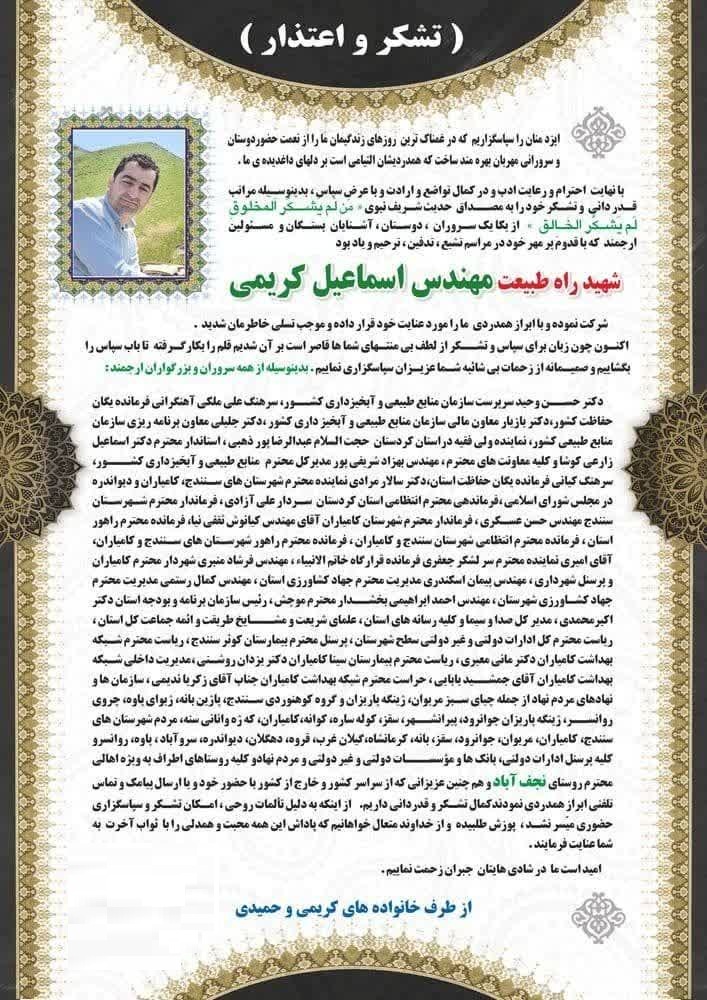 ( تشکر و اعتذار )
ایزد منان را سپاسگزاریم که در غمناک ترین روزهای زندگیمان ما را از نعمت حضور دوستان
و سرورانی مهربان بهره مند ساخت که همدردیشان التیامی است بر دلهای داغدیده ی ما .
با نهایت احترام و رعایت ادب و در کمال تواضع و ارادت و با عرض سپاس ، بدینوسیله مراتب
قدردانی و تشکر خود را به مصداق حدیث شریف نبوی « مَن لَم یَشکُر المَخلوق
لَم یَشکُر الخالق » از یکا یک سروران ، دوستان ، آشنایان بستگان و مسئولین
ارجمند که با قدوم پر مهر خود در مراسم تشیع ، تدفین ، ترحیم و یاد بود
شهید راه طبیعت مهندس اسماعیل کریمی
شرکت نموده و با ابراز همدردی ما را مورد عنایت خود قرار داده و موجب تسلی خاطرمان شدید .
اکنون چون زبان برای سپاس و تشکر از لطف بی منتهای شما ها قاصر است بر آن شدیم قلم را بکار گرفته تا باب سپاس را
بگشاییم و صمیمانه از زحمات بی شائبه شما عزیزان سپاسگزاری نماییم . بدینوسیله از همه سروران و بزرگواران ارجمند :
دکتر حسن وحید سرپرست سازمان منابع طبیعی و آبخیزداری کشور، سرهنگ علی ملکی آهنگرانی فرمانده یگان
حفاظت کشور، دکتر بازیار معاون مالی سازمان منابع طبیعی و آبخیز داری کشور ،دکتر جلیلی معاون برنامه ریزی سازمان
منابع طبیعی کشور، نماینده ولی فقیه در استان کردستان حجت السلام عبدالرضا پور ذهبی ، استاندار محترم دکتر اسماعیل
زارعی کوشا و کلیه معاونت های محترم ، مهندس بهزاد شریفی پور مدیرکل محترم منابع طبیعی و آبخیزداری کشور،
سرهنگ کیانی فرمانده یگان حفاظت استان، دکتر سالار مرادی نماینده محترم شهرستان های سنندج، کامیاران و دیواندره
در مجلس شورای اسلامی ،فرماندهی محترم انتظامی استان کردستان سردار علی آزادی ، فرماندار محترم شهرستان
سنندج مهندس حسن عسکری ، فرماندار محترم شهرستان کامیاران آقای مهندس کیانوش ثقفی نیا، فرمانده محترم راهور
استان ، فرمانده محترم انتظامی شهرستان سنندج و کامیاران ، فرمانده محترم راهور شهرستان های سنندج و کامیاران،
آقای امیری نماینده محترم سر لشکر جعفری فرمانده قرارگاه خاتم الانبیاء ، مهندس فرشاد منبری شهردار محترم کامیاران
و پرسنل شهرداری ، مهندس پیمان اسکندری مدیریت محترم جهاد کشاورزی استان ، مهندس کمال رستمی مدیریت محترم
جهاد کشاورزی شهرستان ، مهندس احمد ابراهیمی بخشدار محترم موچش ، رئیس سازمان برنامه و بودجه استان دکتر
اکبر محمدی ، مدیر کل صدا و سیما و کلیه رسانه های استان ، علمای شریعت و مشایخ طریقت و ائمه جماعت کل استان ،
ریاست محترم کل ادارات دولتی و غیر دولتی سطح شهرستان ، پرسنل محترم بیمارستان کوثر سنندج ، ریاست محترم شبکه
بهداشت کامیاران دکتر مانی معیری ، ریاست محترم بیمارستان سینا کامیاران دکتر یزدان روشنی ،مدیریت داخلی شبکه
بهداشت کامیاران آقای جمشید بابایی ، حراست محترم شبکه بهداشت کامیاران جناب آقای زکریا ندیمی ، سازمان ها و
نهادهای مردم نهاد از جمله چیای سبز مریوان، ژینگه پاریزان و گروه کوهنوردی سنندج، پازین بانه، ژیوای پاوه، چروی
روانسر ، ژینگه پاریزان جوانرود، پیرانشهر، سقز، کوله ساره، کوانه، کامیاران، که ژه وانانی سنه، مردم شهرستان های
سنندج، کامیاران، مریوان، جوانرود، سقز، بانه، کرمانشاه، گیلان غرب، قروه، دهگلان، دیواندره، سروآباد ، پاوه، روانسر و
کلیه پرسنل ادارات دولتی، بانک ها و مؤسسات دولتی و غیر دولتی و مردم نهاد و کلیه روستاهای اطراف به ویژه اهالی
محترم روستای نجف آباد و هم چنین عزیزانی که از سراسر کشور و خارج از کشور با حضور خود و یا ارسال پیامک و تماس
تلفنی ابراز همدردی نمودند کمال تشکر و قدردانی داریم. از اینکه به دلیل تألمات روحی ، امکان تشکر و سپاسگزاری
حضوری میّسر نشد ، پوزش طلبیده و از خداوند متعال خواهانیم که پاداش این همه محبت و همدلی را با ثواب آخرت به
شما عنایت فرمایند .
امید است ما در شادی هایتان جبران زحمت نماییم .
از طرف خانواده های کریمی و حمیدی